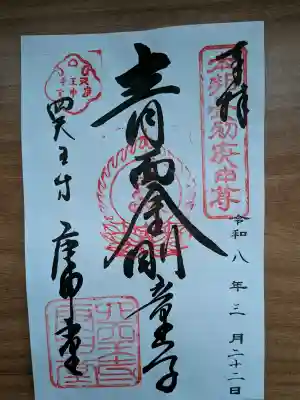 奉拝
本邦最初庚申尊
令和八年三月二十二日
青面金剛童子
四天王寺
庚申堂